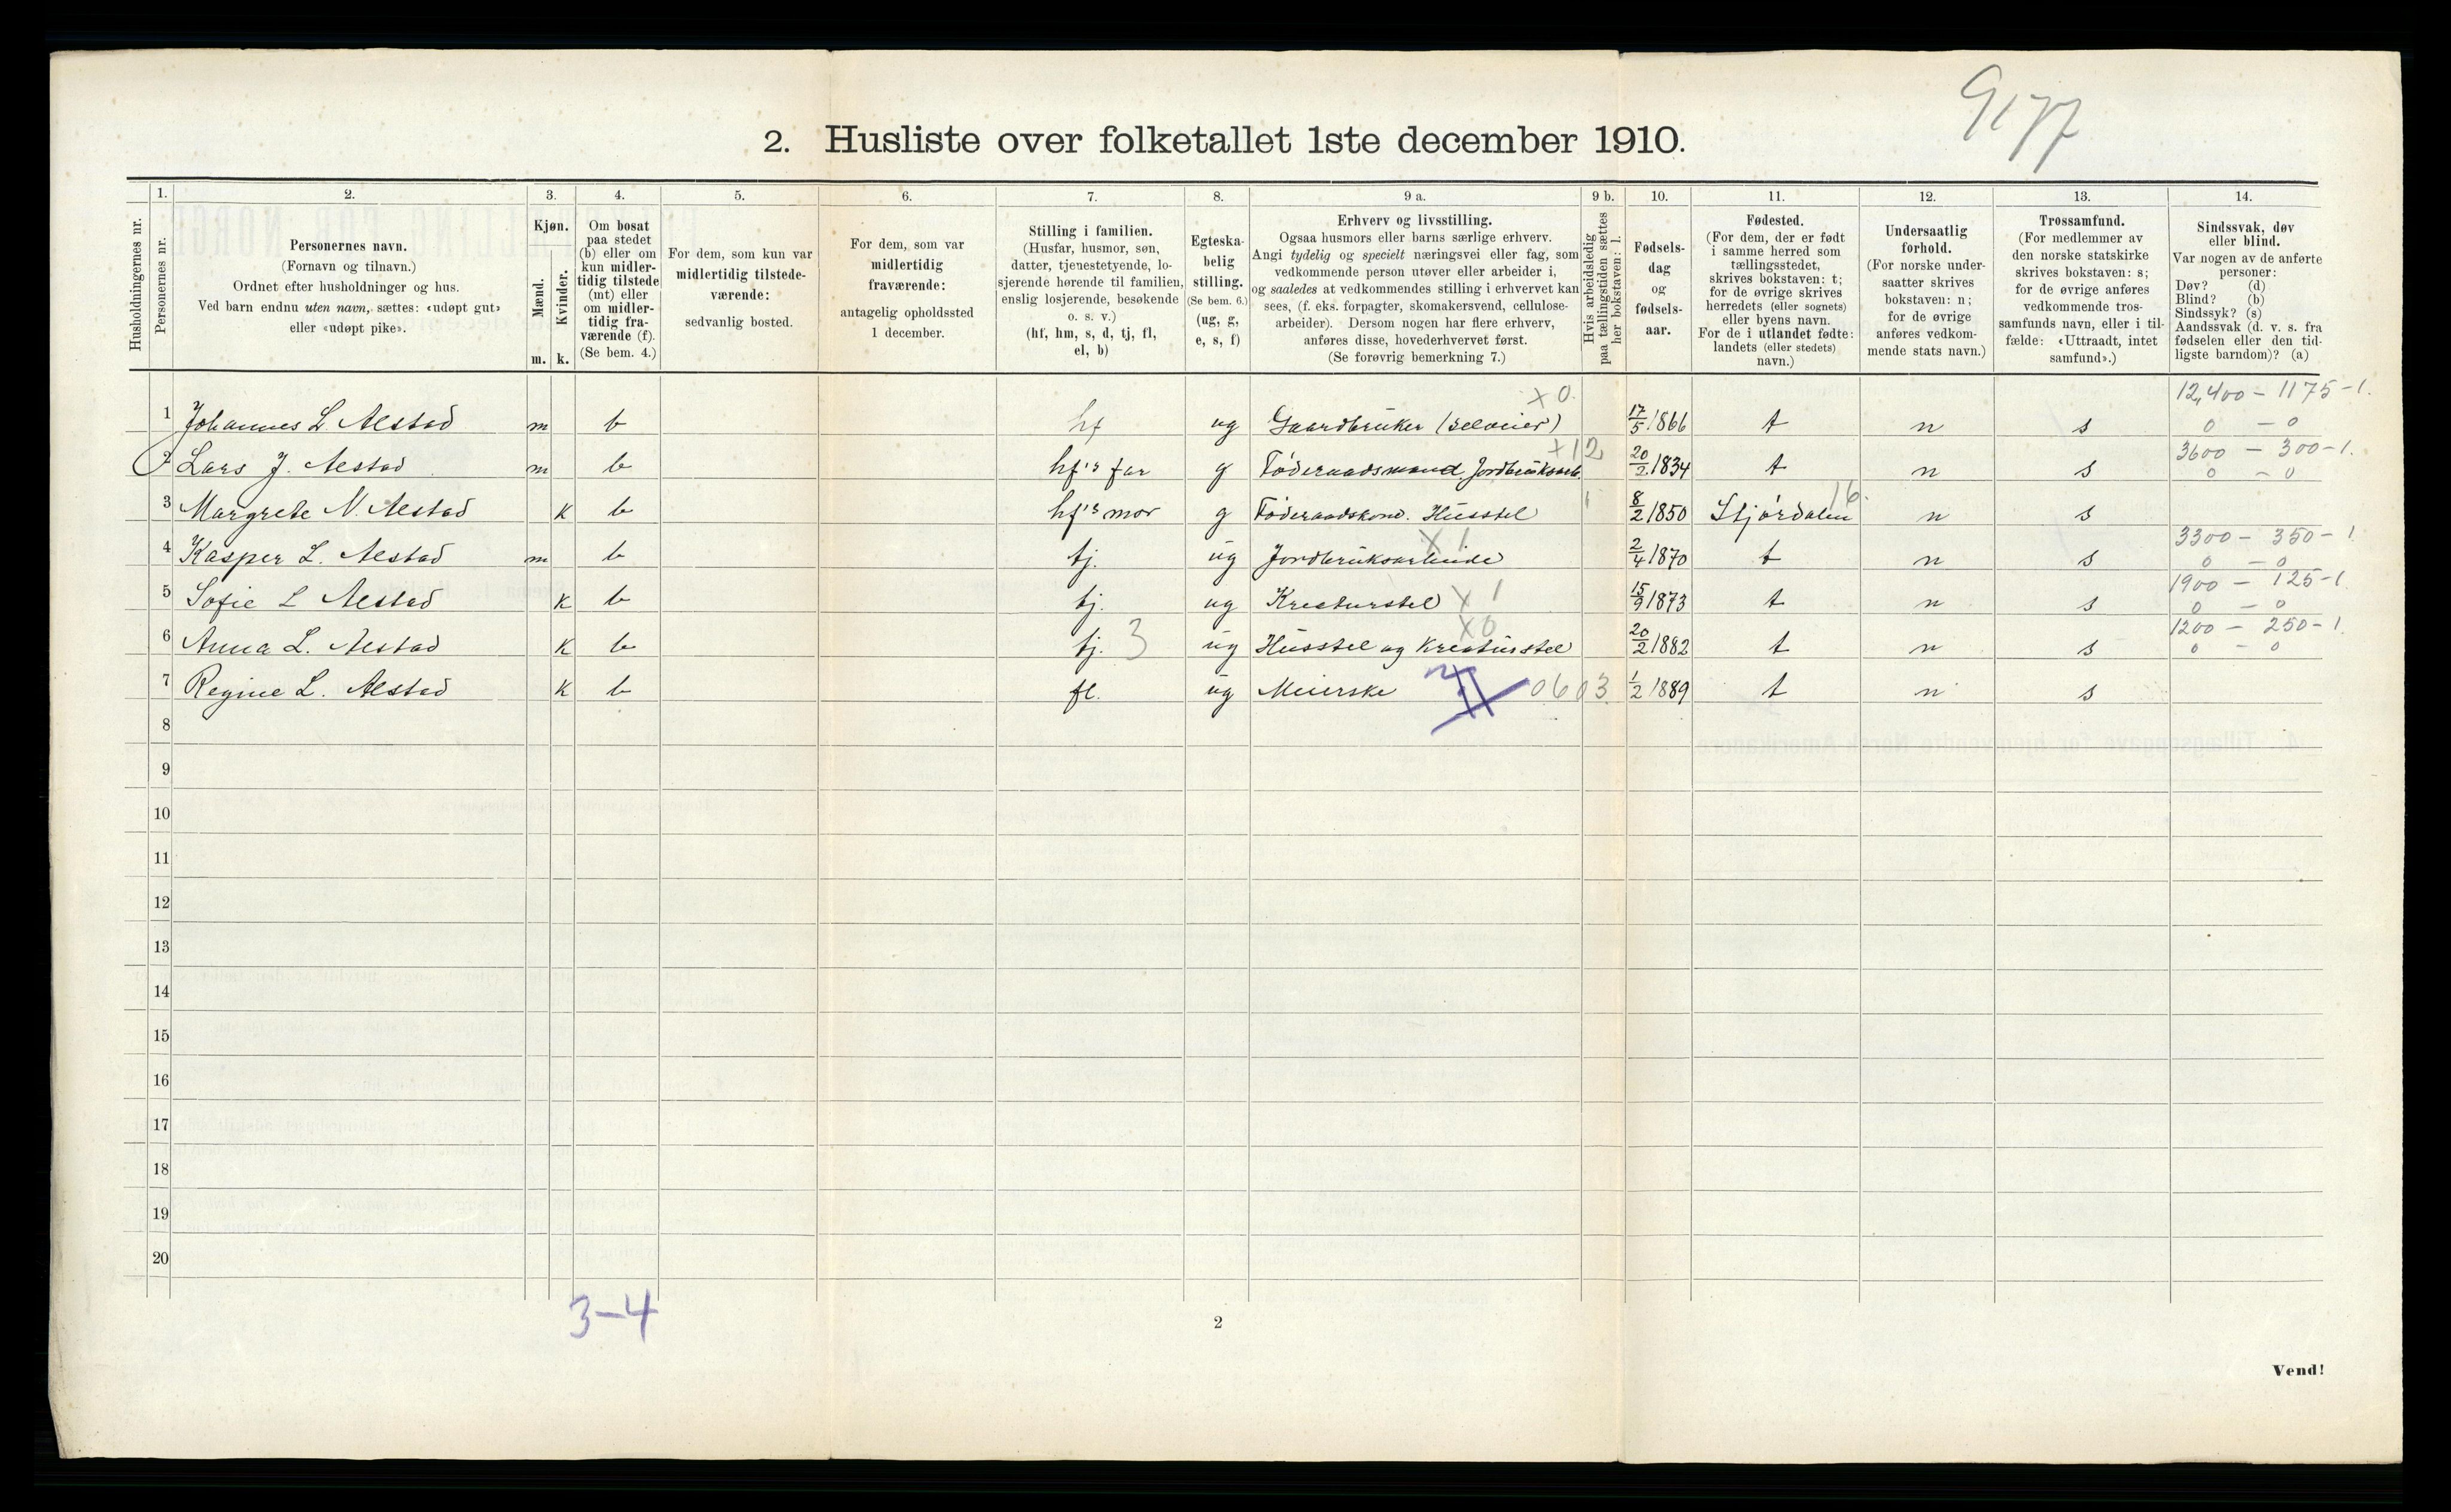 9177
2. Husliste over folketallet 1ste december 1910.
Husholdningernes nr.
1.
Personernes nr.
2.
Personernes navn.
(Fornavn og tilnavn.)
Ordnet efter husholdninger og hus.
Ved barn endnu uten navn, sættes: «udøpt gut»
eller «udøpt pike».
3.
Kjøn.
Mænd.
m.
Kvinder.
k.
4.
Om bosat
paa stedet
(b) eller om
kun midler-
tidig tilstede
(mt) eller
om midler-
tidig fra-
værende (f).
(Se bem. 4.)
5.
For dem, som kun var
midlertidig tilstede-
værende:
sedvanlig bosted.
6.
For dem, som var
midlertidig
fraværende:
antagelig opholdssted
1 december.
7.
Stilling i familien.
(Husfar, husmor, søn,
datter, tjenestetyende, lo-
sjerende hørende til familien,
enslig losjerende, besøkende
o. s. v.)
(hf, hm, s, d, tj, fl,
el, b)
8.
Egteska-
belig
stilling.
(Se bem. 6.)
(ug, g,
e, s, f)
9 a.
Erhverv og livsstilling.
Ogsaa husmors eller barns særlige erhverv.
Angi tydelig og specielt næringsvei eller fag, som
vedkommende person utøver eller arbeider i,
og saaledes at vedkommendes stilling i erhvervet kan
sees, (f. eks. forpagter, skomakersvend, cellulose-
arbeider). Dersom nogen har flere erhverv,
anføres disse, hovederhvervet først.
(Se forøvrig bemerkning 7.)
9 b.
Hvis arbeidsledig
paa tællingstiden sættes
her bokstaven: l.
10.
Fødsels-
dag
og
fødsels-
aar.
11.
Fødested.
(For dem, der er født
i samme herred som
tællingsstedet,
skrives bokstaven: t;
for de øvrige skrives
herredets (eller sognets)
eller byens navn.
For de i utlandet fødte:
landets (eller stedets)
navn.)
12.
Undersaatlig
forhold.
(For norske under-
saatter skrives
bokstaven: n;
for de øvrige
anføres vedkom-
mende stats navn.)
13.
Trossamfund.
(For medlemmer av
den norske statskirke
skrives bokstaven: s;
for de øvrige anføres
vedkommende tros-
samfunds navn, eller i til-
fælde: «Uttraadt, intet
samfund».)
14.
Sindssvak, døv
eller blind.
Var nogen av de anførte
personer:
Døv? (d)
Blind? (b)
Sindssyk? (s)
Aandssvak (d. v. s. fra
fødselen eller den tid-
ligste barndom)? (a)
x 0. 12,400 - 1175 - 1.
1 Johannes L. Alstad m b hf ug Gaardbruker (selveier) 17/5 1866 t n s 0 - 0
x 12 3600 - 300 - 1.
2 Lars J. Alstad m b hf's far g Föderaadsmand. Jordbruksarb. 20/2 1834 t n s 0 - 0
3 Margrete N. Alstad k b hf's mor g Föderaadskone. Husstel 8/2 1850 Stjördalen 16. n s
x 1 3300 - 350 - 1.
4 Kasper L. Alstad m b tj. ug Jordbruksarbeide 2/4 1870 t n s 0 - 0
1900 - 125 - 1
5 Sofie L Alstad k b tj. ug Kreaturstel x 1 15/9 1873 t n s 0 - 0
x 0 1200 - 250 - 1.
6 Anna L. Alstad k b tj. 3 ug Husstel og Kreaturstel 20/2 1882 t n s 0 - 0
7 Regine L. Alstad k b fl. ug Meierske 0603 1/2 1889 t n s
8
9
10
11
12
13
14
15
16
17
18
19
20
3-4
2
Vend!